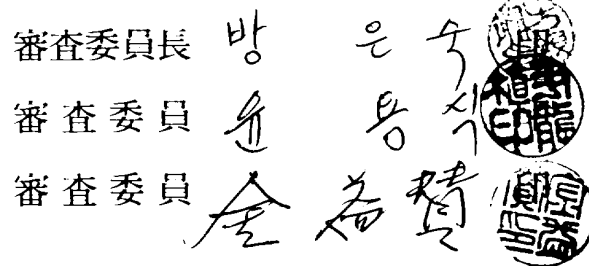 審査委員長 방 은 숙
審査委員 윤 용 식
審査委員 金 益 贊